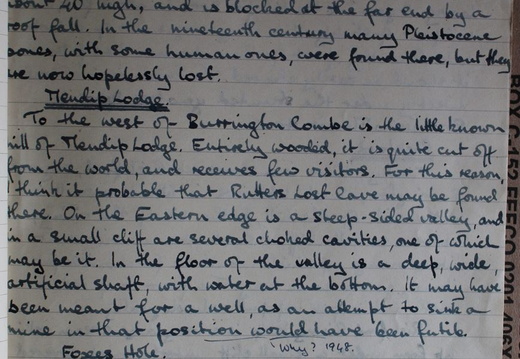 about 40' high, and is blocked at the far end by a
roof fall. In the nineteenth century many Pleistocene
bones, with some human ones, were found there, but they
are now hopelessly lost.
Mendip Lodge.
To the west of Burrington Combe is the little known
hill of Mendip Lodge. Entirely wooded, it is quite cut off
from the world, and receives few visitors. For this reason,
I think it probable that Rutters Lost Cave may be found
there. On the Eastern edge is a steep-sided valley, and
in a small cliff are several choked cavities, one of which
may be it. In the floor of the valley is a deep, wide,
artificial shaft, with water at the bottom. It may have
been meant for a well, as an attempt to sink a
mine in that position would have been futile.
Foxes Hole.
Why? 1948.